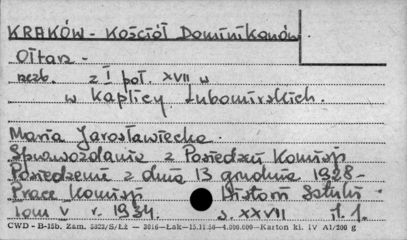 KRAKÓW - Kościół Dominikanów
Ołtarz -
rzeźb. z I poł. XVII w
w Kaplicy Lubomirskich.
Maria Jarosławiecka.
Sprawozdania z Posiedzeń Komisji
Posiedzenie z dnia 13 grudnia 1928 -
Prace Komisji Historii Sztuki -
tom V r. 1934. s. XXVII il. 1.
CWD - B-15b. Zam. /S/ŁŻ — 3016—Łak—15.11.56—4.000.000—Karton kl. IV A1/200 g